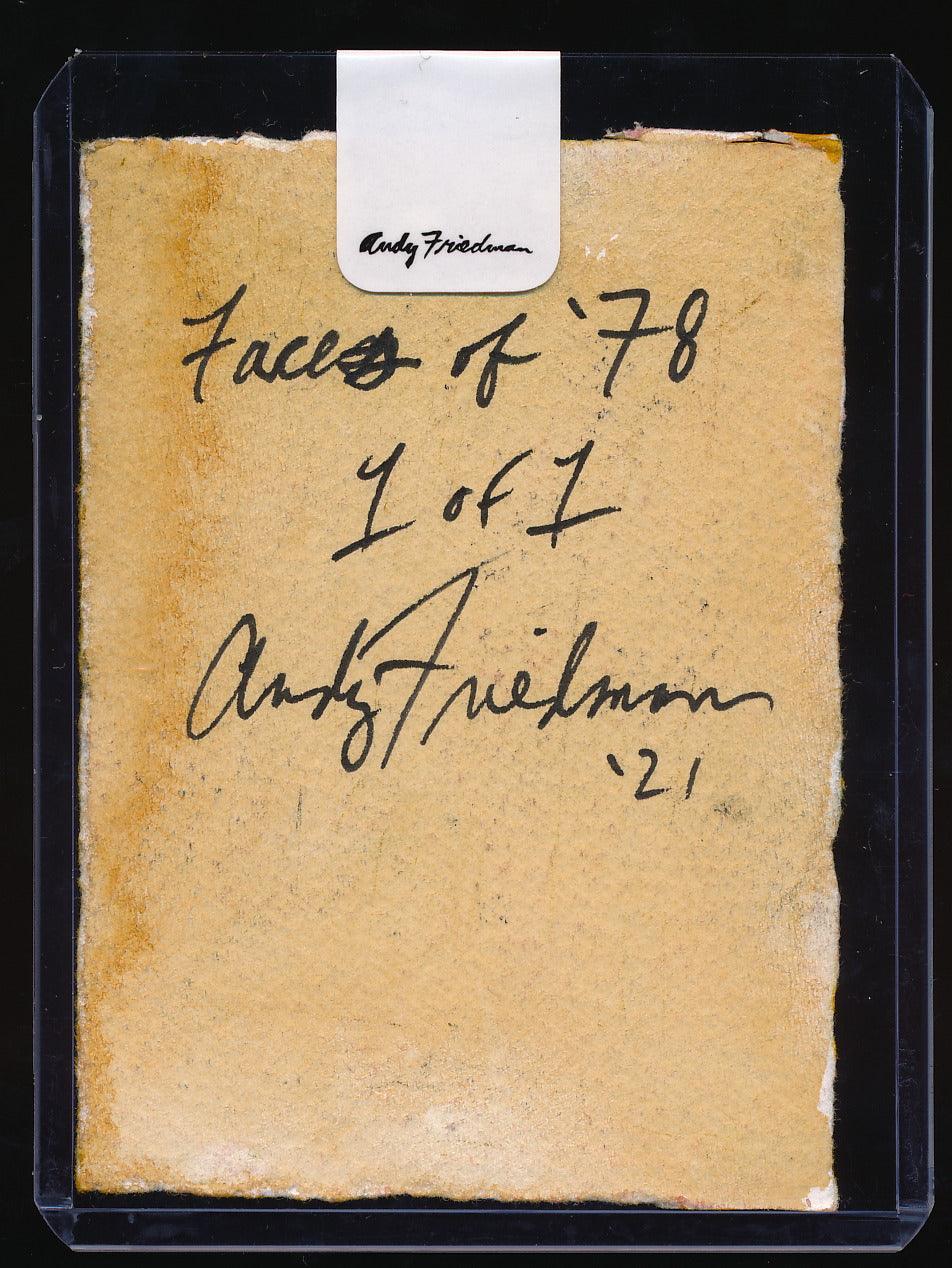 Andy Friedman
Faces of '78
1 of 1
Andy Friedman
'21